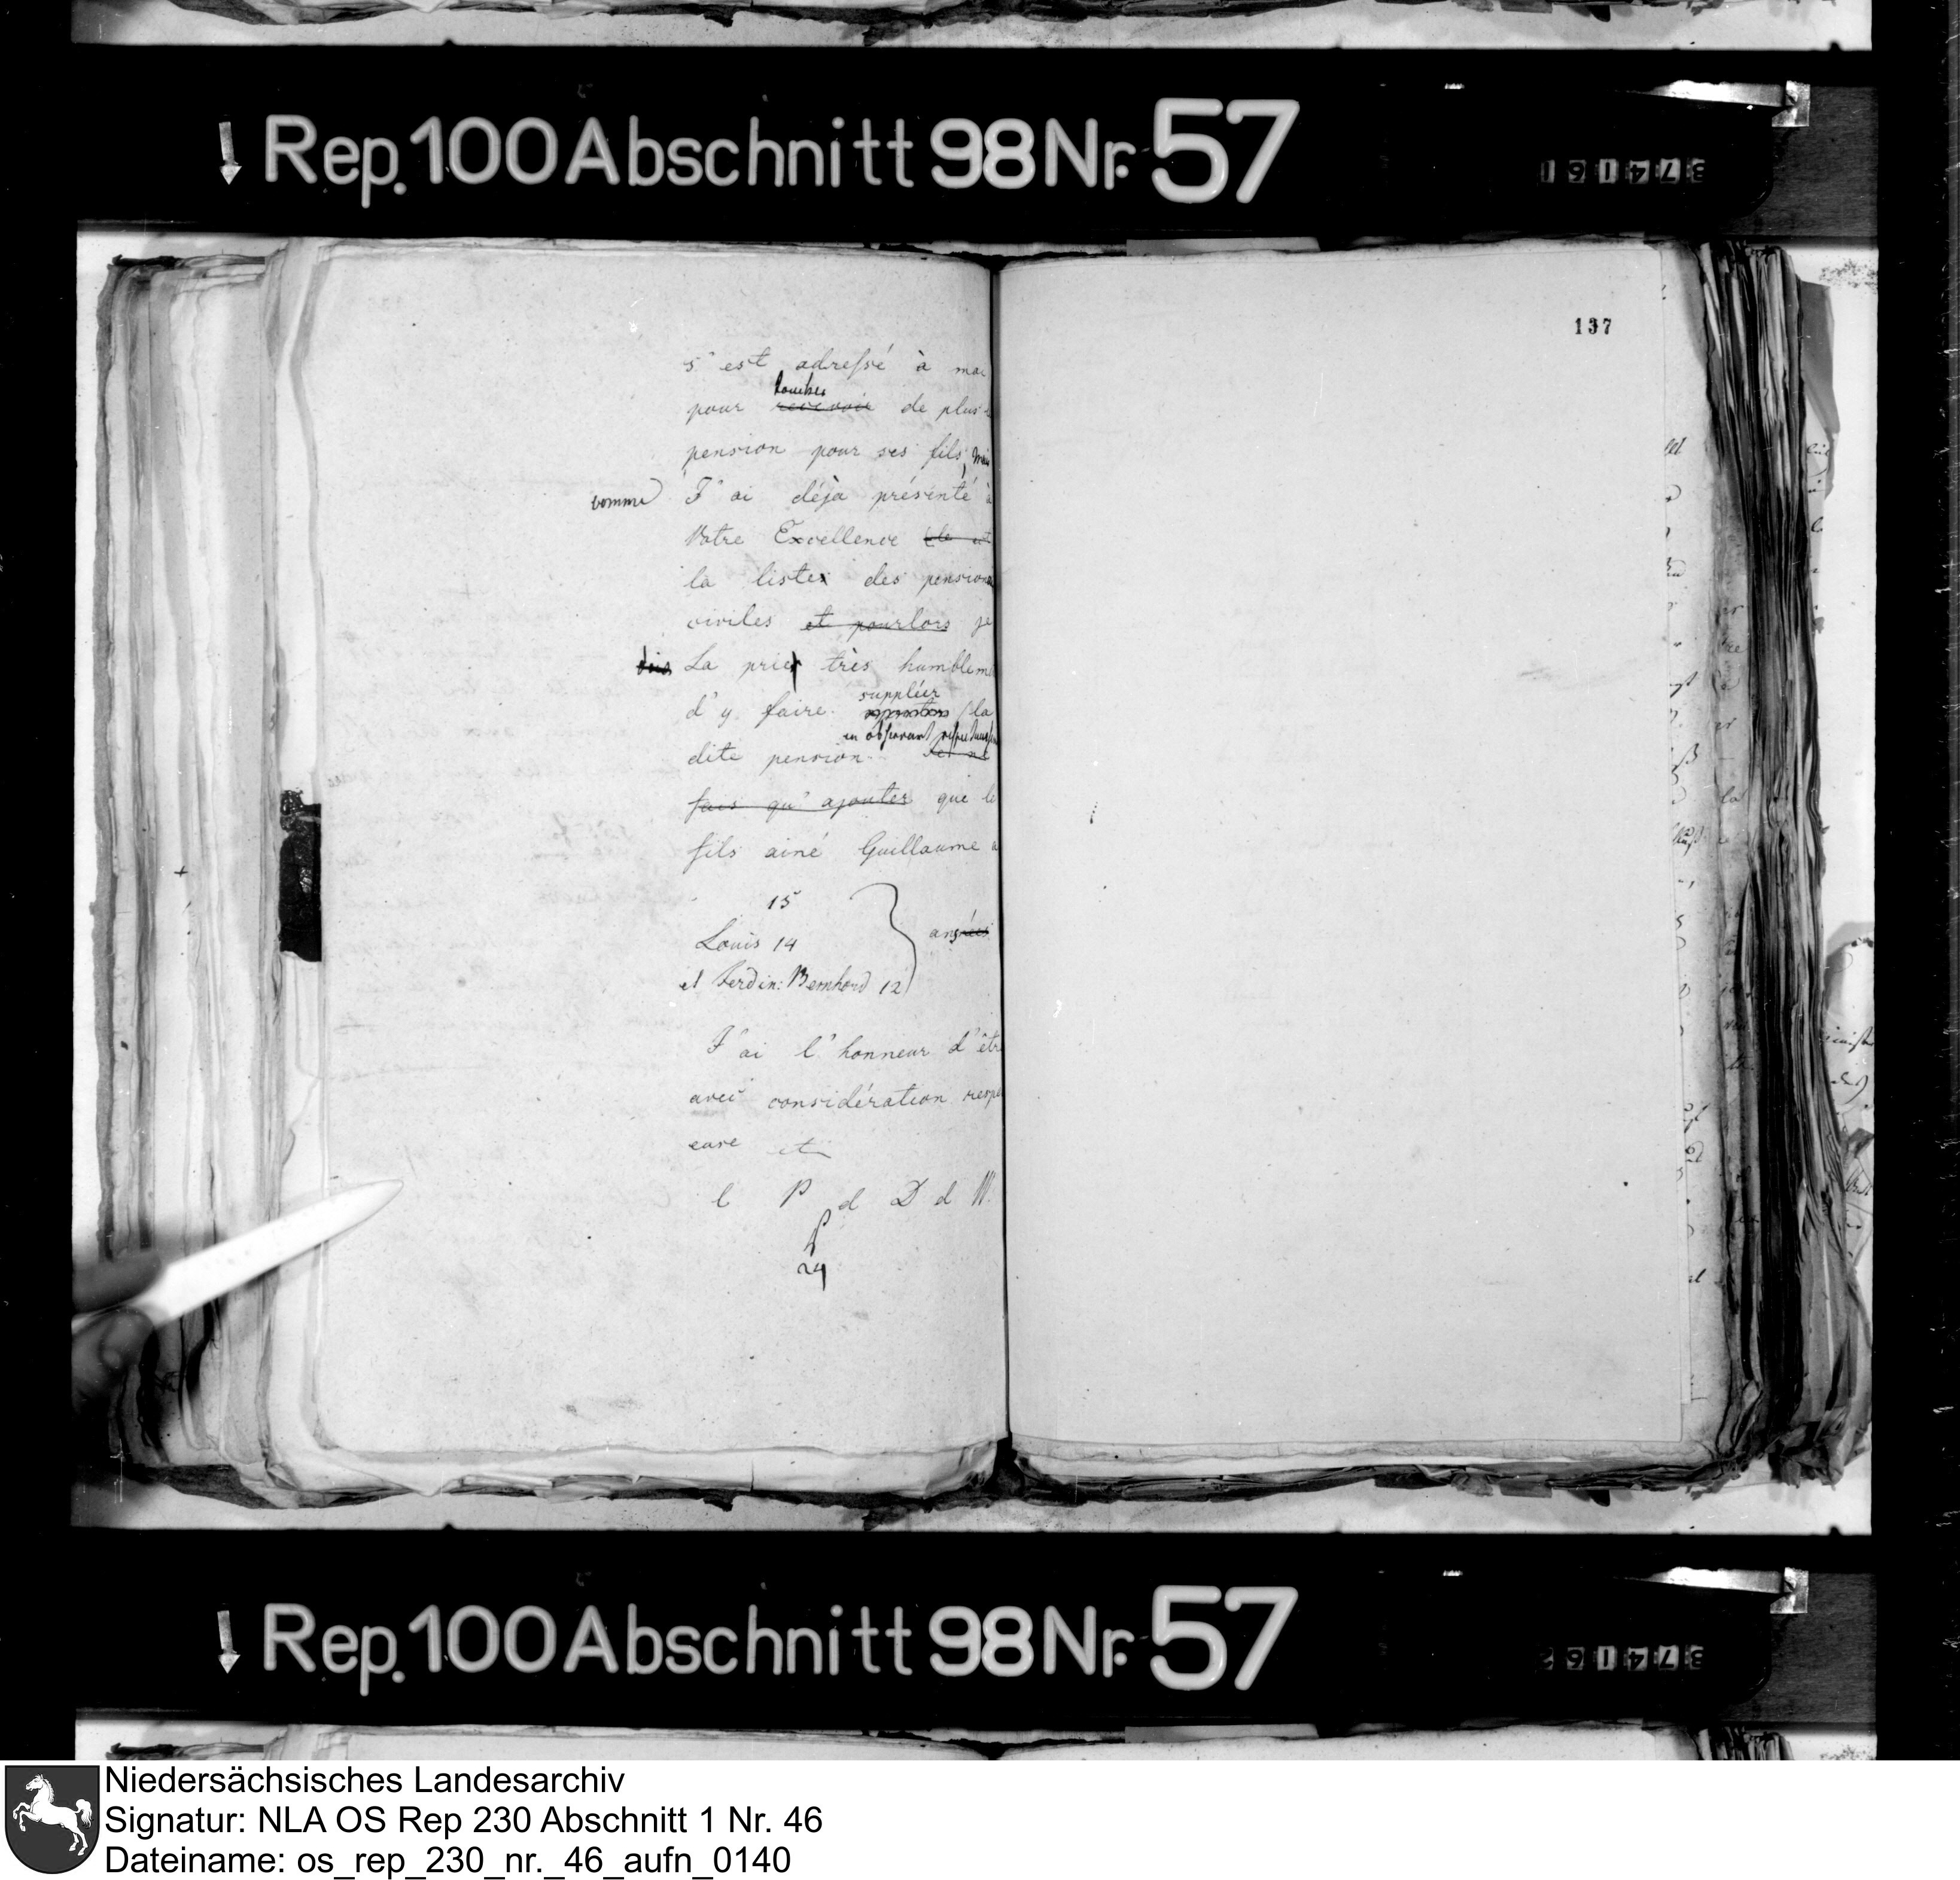 Rep. 100 Abschnitt 98 Nr. 57
374161
137
s'est adressé à moi
toucher
pour recevoir de plus
pension pour ses fils, mais
comme J'ai déjà présenté à
Votre Excellence
la liste des pensions
civiles et pourlors je
dois La prier très humbleme
d'y faire suppléer la
en observant
dite pension.
fais qu'ajouter que le
fils ainé Guillaume a
15
Louis 14
ans
et Ferdin: Bernhard 12
J'ai l'honneur d'être
avec considération respe
euse et
l P d D d W.
29
Rep. 100 Abschnitt 98 Nr. 57
374162
Niedersächsisches Landesarchiv
Signatur: NLA OS Rep 230 Abschnitt 1 Nr. 46
Dateiname: os_rep_230_nr._46_aufn_0140